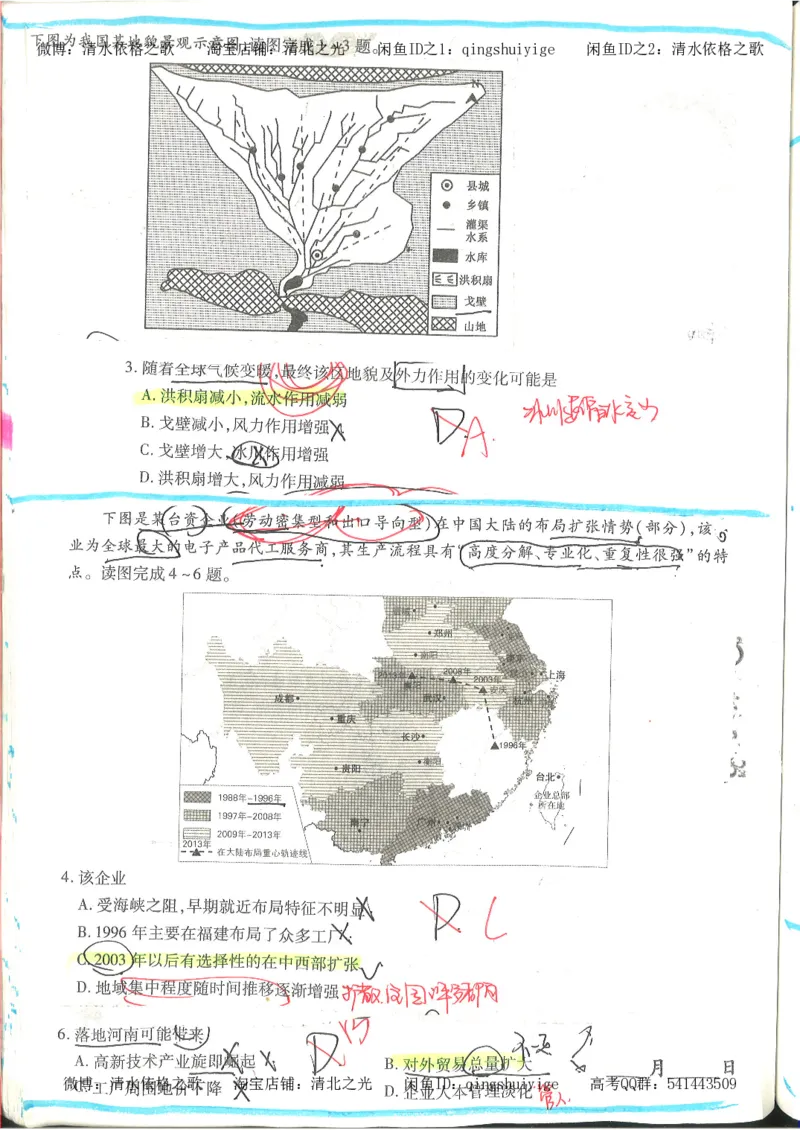 下图为我国某地貌景观示意图,读图完成1~3题。
微博：清水依格之歌 淘宝店铺：清北之光 闲鱼ID之1：qingshuiyige 闲鱼ID之2：清水依格之歌
N
县城
乡镇
灌渠
水系
水库
洪积扇
戈壁
山地
3.随着全球气候变暖,最终该区地貌及外力作用的变化可能是
A.洪积扇减小,流水作用减弱
B.戈壁减小,风力作用增强
C.戈壁增大,冰川作用增强
D.洪积扇增大,风力作用减弱
D A.
下图是某台资企业(劳动密集型和出口导向型)在中国大陆的布局扩张情势(部分),该
业为全球最大的电子产品代工服务商,其生产流程具有“高度分解、专业化、重复性很强”的特
点。读图完成4~6题。
郑州
南阳
2013年
2008年
2003年
安庆
上海
成都
武汉
杭州
重庆
长沙
1996年
衡阳
贵阳
台北
企业总部
所在地
南宁
广州
1988年-1996年
1997年-2008年
2009年-2013年
2013年
在大陆布局重心轨迹线
4.该企业
A.受海峡之阻,早期就近布局特征不明显
B.1996年主要在福建布局了众多工厂
C.2003年以后有选择性的在中西部扩张
D.地域集中程度随时间推移逐渐增强
D C
6.落地河南可能带来
A.高新技术产业旋即崛起
B.对外贸易总量扩大
D
月 日
微博：清水依格之歌 淘宝店铺：清北之光 闲鱼ID：qingshuiyige 高考QQ群：541443509
C.工厂周围地价下降
D.企业人本管理淡化